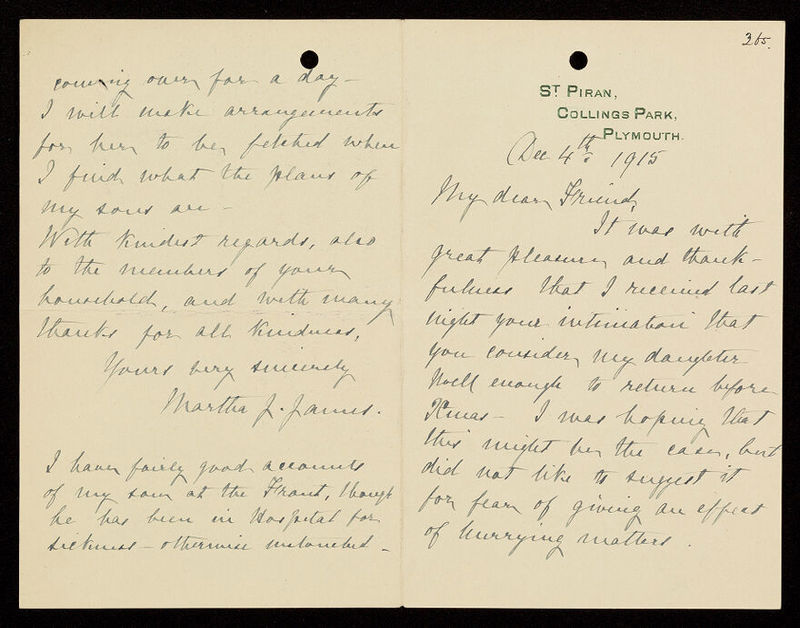 365.
St Piran,
Collings Park,
Plymouth.
Dec 4th 1915
My dear Friend,
It was with
great pleasure and thank-
fulness that I received last
night your intimation that
you consider my daughter
well enough to return before
Xmas – I was hoping that
this might be the case, but
did not like to suggest it
for fear of giving an effect
of hurrying matters.
coming over for a day –
I will make arrangements
for her to be fetched when
I find what the plans of
my sons are –
With kindest regards, also
to the members of your
household, and with many
thanks for all kindness,
Yours very sincerely
Martha J. James.
I have fairly good accounts
of my son at the Front, though
he has been in Hospital for
sickness – otherwise untouched –